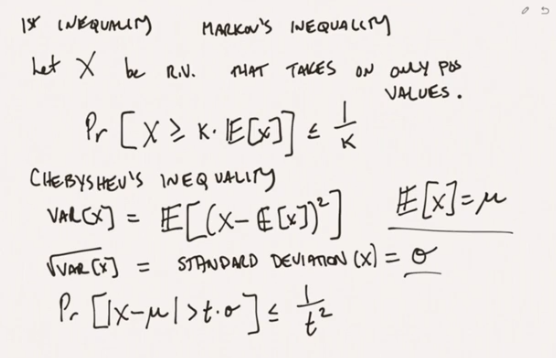 1st INEQUALITY MARKOV'S INEQUALITY
Let X be R.V. THAT TAKES ON ONLY POS
VALUES.
Pr [X ≥ K · 𝔼[X]] ≤ 1/K
CHEBYSHEV'S INEQUALITY
VAR[X] = 𝔼[(X-𝔼[X])²] 𝔼[X] = μ
√VAR[X] = STANDARD DEVIATION (X) = σ
Pr [|X-μ| > t·σ] ≤ 1/t²